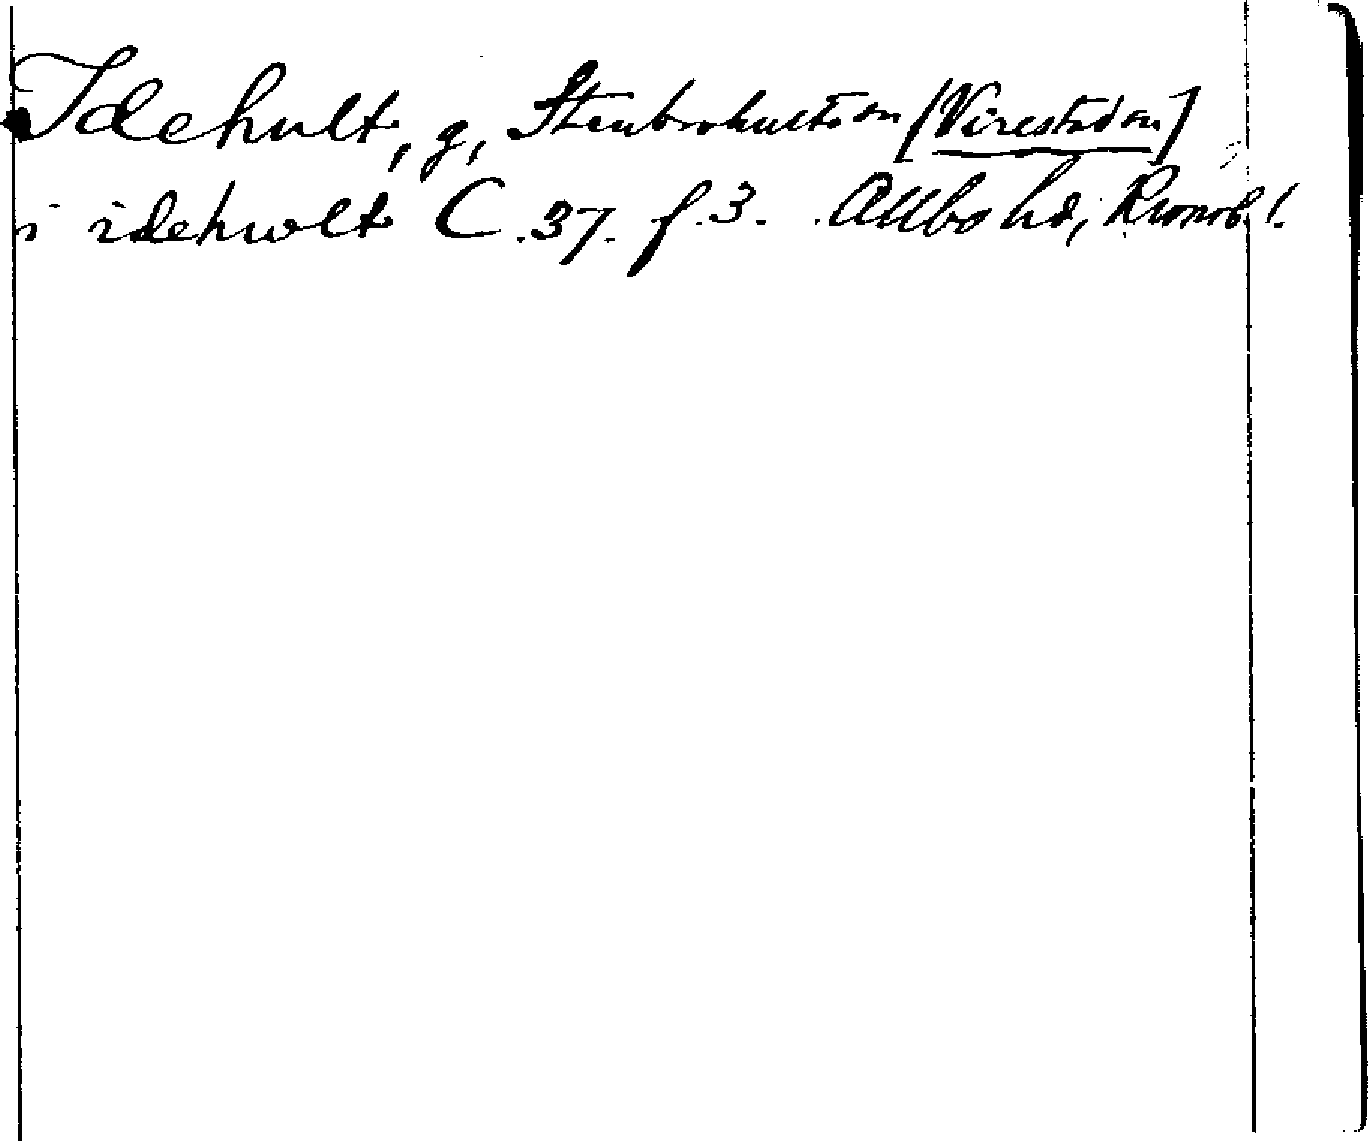 Idehult, g, Stenbrohults sn [Virestad sn]
i idehwlt C. 37. f. 3. Allbo hd, Kronob. l.